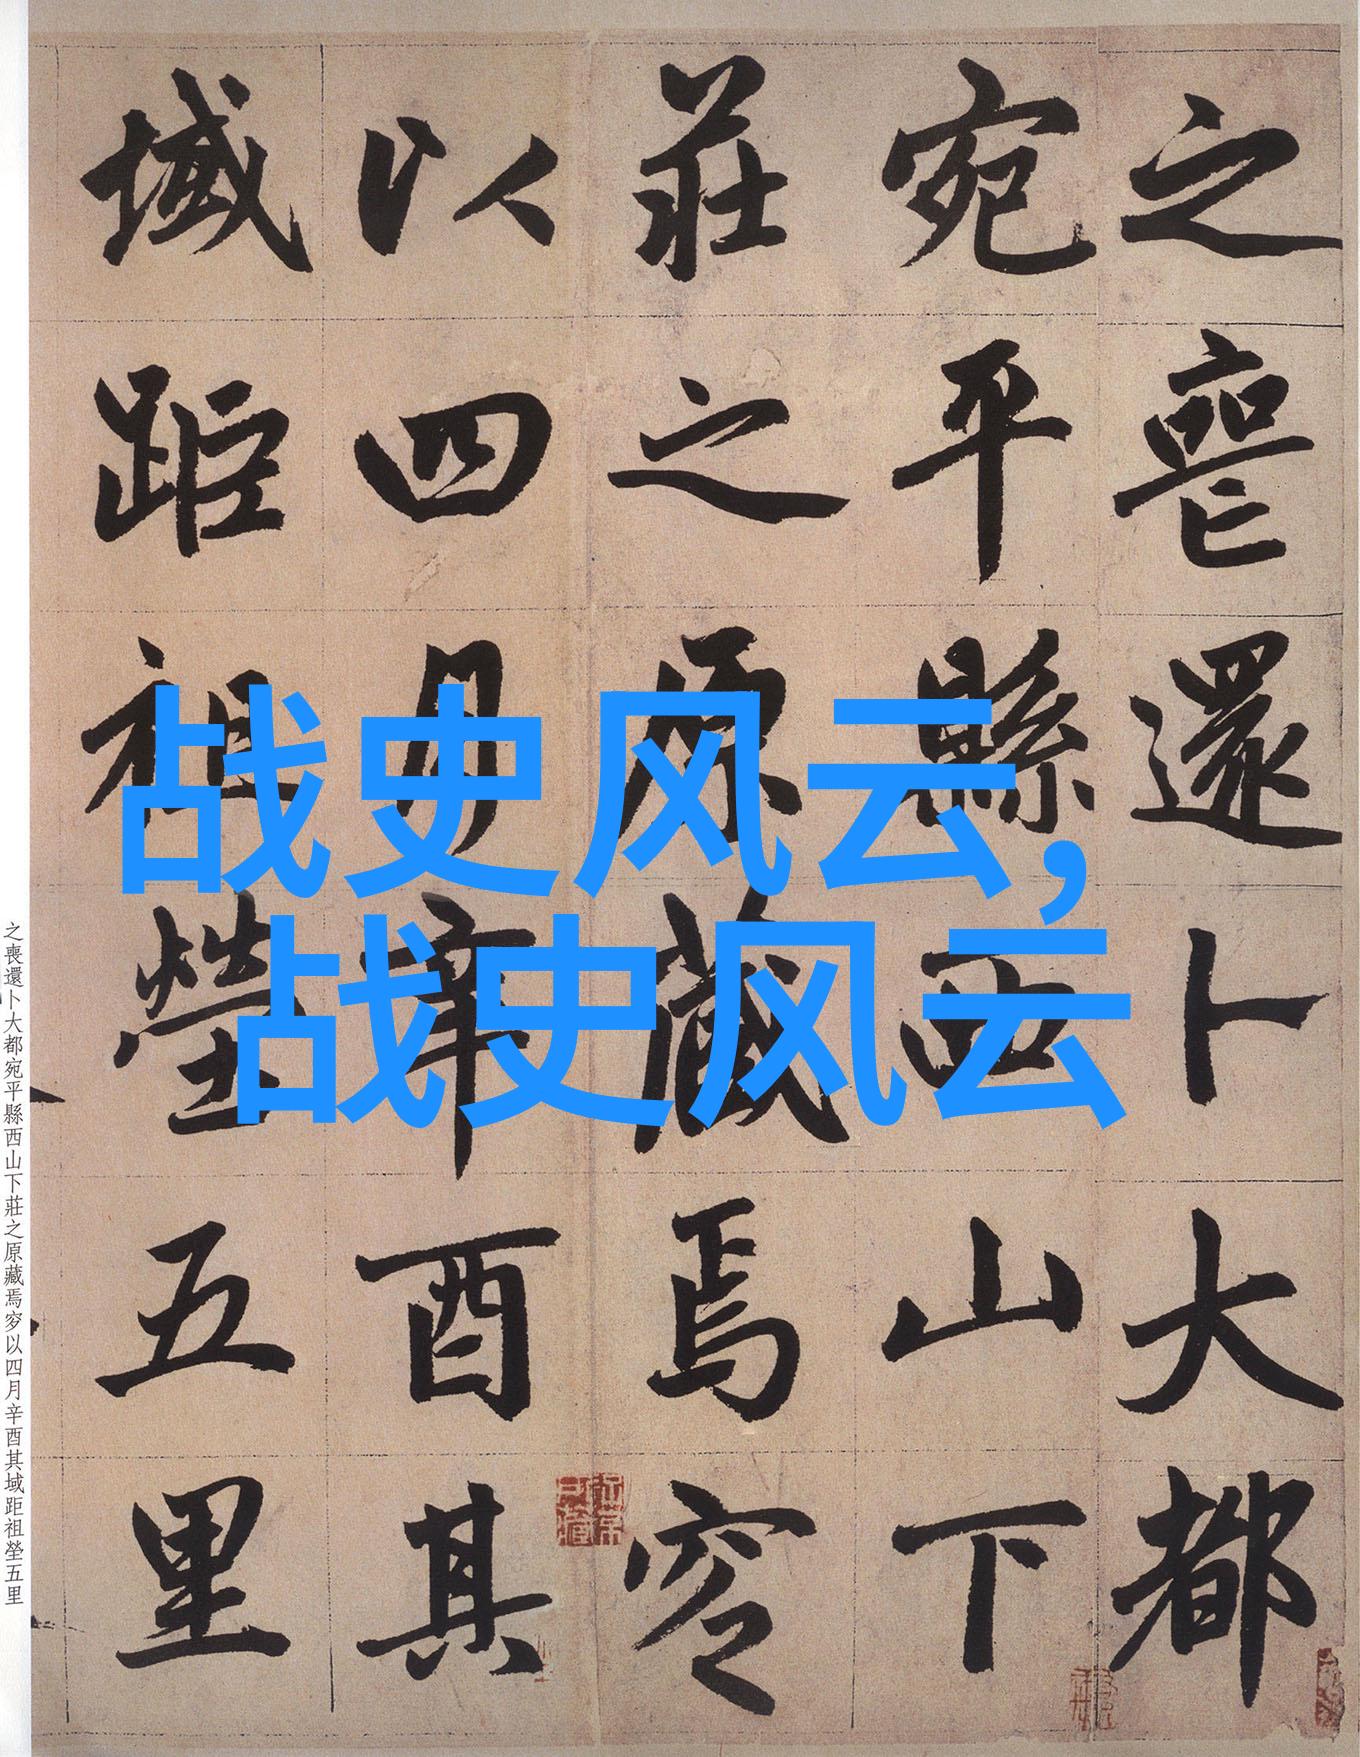 之喪還卜大都
宛平縣西山下
莊之原藏焉窆
以四月辛酉其
域距祖塋五里
战史风云,
战史风云
之喪還卜大都宛平縣西山下莊之原藏焉窆以四月辛酉其域距祖塋五里